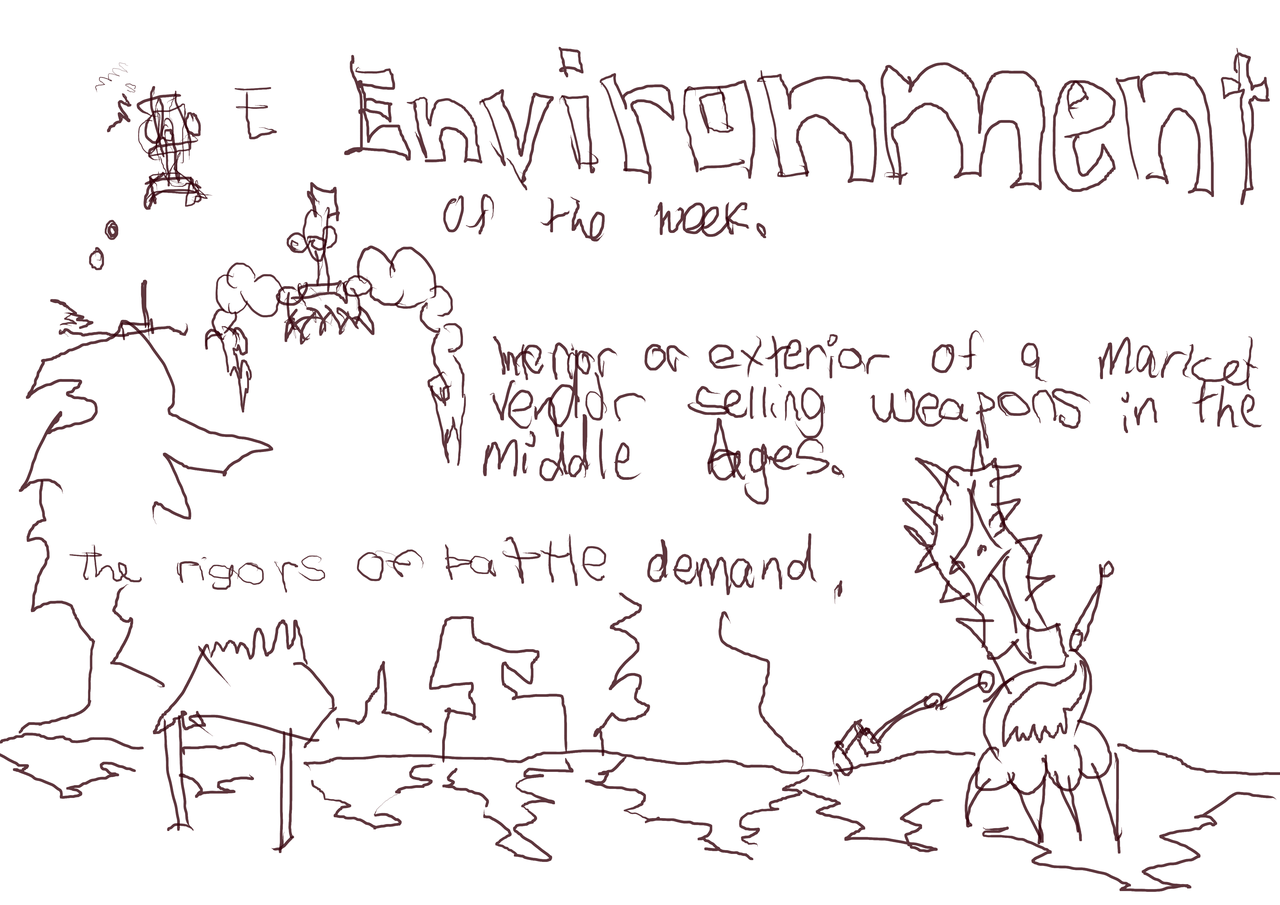 E Environment
Of the week.
Interior or exterior of a Market
vendor selling weapons in the
Middle Ages.
The rigors of battle demand,